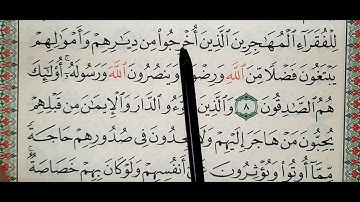 لِلْفُقَرَآءِ ٱلْمُهَٰجِرِينَ ٱلَّذِينَ أُخْرِجُوا۟ مِن دِيَٰرِهِمْ وَأَمْوَٰلِهِمْ
يَبْتَغُونَ فَضْلًا مِّنَ ٱللَّهِ وَيَنصُرُونَ ٱللَّهَ وَرَسُولَهُۥٓ ۚ أُو۟لَٰٓئِكَ
هُمُ ٱلصَّٰدِقُونَ ٨ وَٱلَّذِينَ ٱلدَّارَ وَٱلْإِيمَٰنَ مِن قَبْلِهِمْ
يُحِبُّونَ مَنْ هَاجَرَ إِلَيْهِمْ وَلَا فِى صُدُورِهِمْ حَاجَةً
مِّمَّآ أُوتُوا۟ وَيُؤْثِرُونَ أَنفُسِهِمْ وَلَوْ كَانَ بِهِمْ خَصَاصَةٌ ۚ